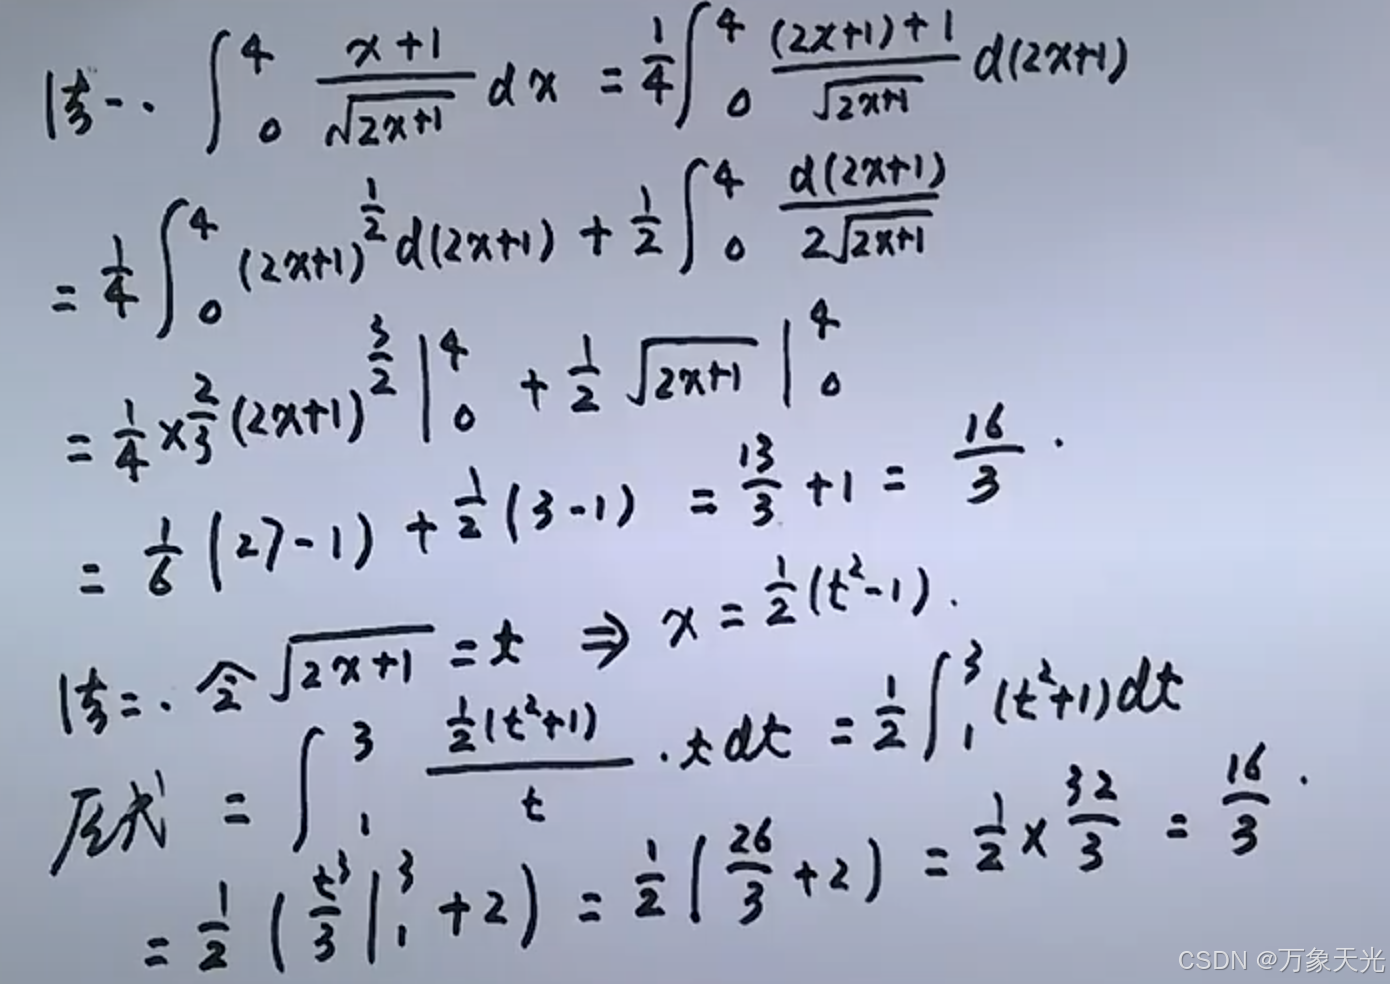 法一. ∫₀⁴ (x+1)/√(2x+1) dx = 1/4 ∫₀⁴ ((2x+1)+1)/√(2x+1) d(2x+1)
= 1/4 ∫₀⁴ (2x+1)^(1/2) d(2x+1) + 1/2 ∫₀⁴ d(2x+1)/(2√(2x+1))
= 1/4 × 2/3 (2x+1)^(3/2) |₀⁴ + 1/2 √(2x+1) |₀⁴
= 1/6 (27-1) + 1/2 (3-1) = 13/3 + 1 = 16/3.
法二. 令 √(2x+1) = t ⇒ x = 1/2 (t²-1).
原式 = ∫₁³ (1/2 (t²+1))/t · t dt = 1/2 ∫₁³ (t²+1) dt
= 1/2 (t³/3 |₁³ + 2) = 1/2 (26/3 + 2) = 1/2 × 32/3 = 16/3.
CSDN @万象天光